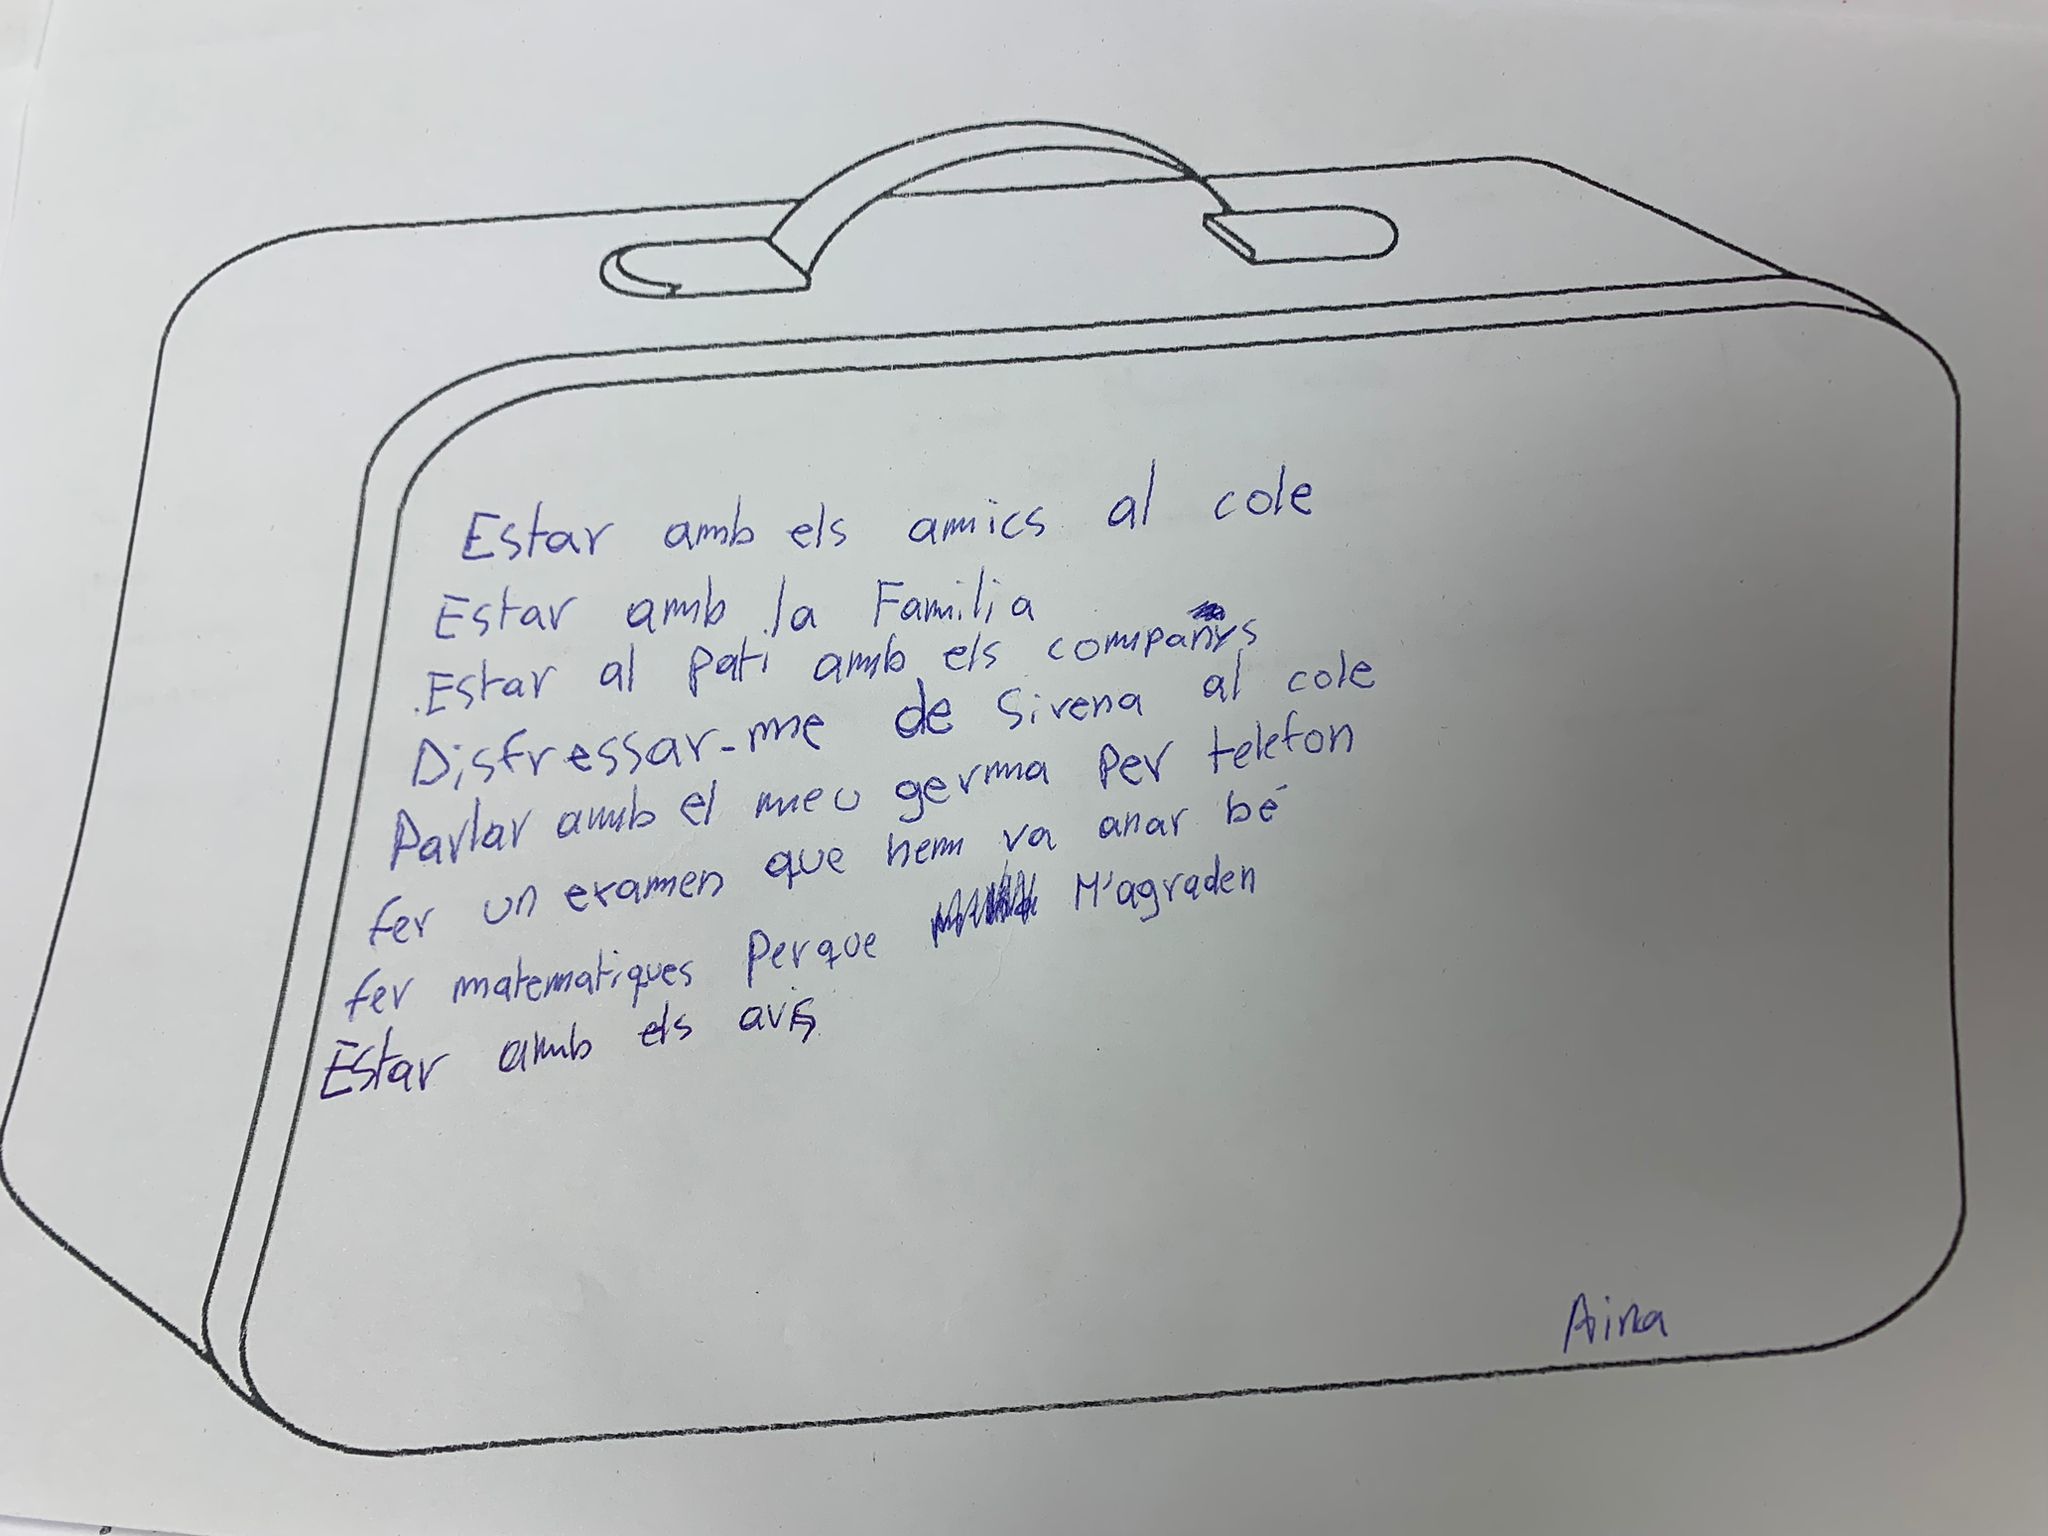 Estar amb els amics al cole
Estar amb la Familia
Estar al pati amb els companys
Disfressar-me de Sirena al cole
Parlar amb el meu germa per telefon
fer un examen que hem va anar bé
fer matematiques perque M'agraden
Estar amb els avis
Aina